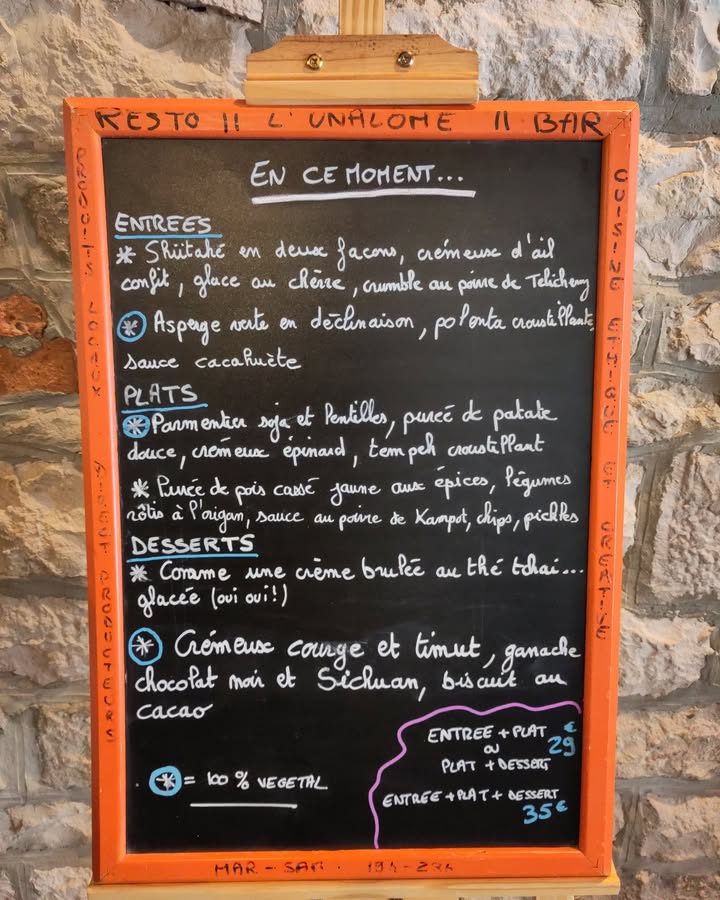 RESTO || L'UNALOME || BAR
EN CE MOMENT...
ENTREES
* Shiitaké en deux façons, crémeux d'ail
confit, glace au chèvre, crumble au poivre de Telichery
* Asperge verte en déclinaison, polenta croustillante,
sauce cacahuète
PLATS
* Parmentier soja et lentilles, purée de patate
douce, crémeux épinard, tempeh croustillant
* Purée de pois cassé jaune aux épices, légumes
rôtis à l'origan, sauce au poivre de Kampot, chips, pickles
DESSERTS
* Comme une crème brulée au thé tchai...
glacée (oui oui!)
* Crémeux courge et timut, ganache
chocolat noir et Sichuan, biscuit au
cacao
* = 100 % VEGETAL
ENTREE + PLAT
ou
PLAT + DESSERT
29€
ENTREE + PLAT + DESSERT
35€
PRODUITS LOCAUX
PRODUCTEURS
CUISINE ETHIQUE ET CREATIVE
MAR - SAM